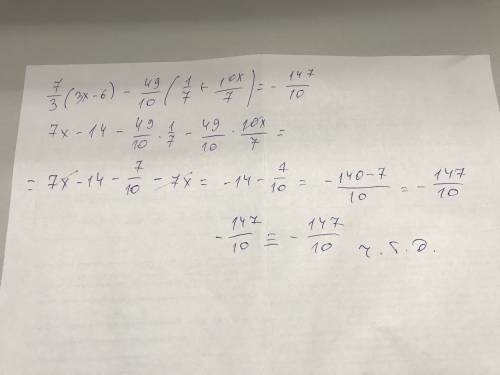 7/3 (3x-6) - 49/10 (1/7 + 10x/7) = - 147/10
7x - 14 - 49/10 · 1/7 - 49/10 · 10x/7 =
= 7x - 14 - 7/10 - 7x = -14 - 7/10 = - 140-7/10 = - 147/10
- 147/10 ≡ - 147/10 ч.т.д.